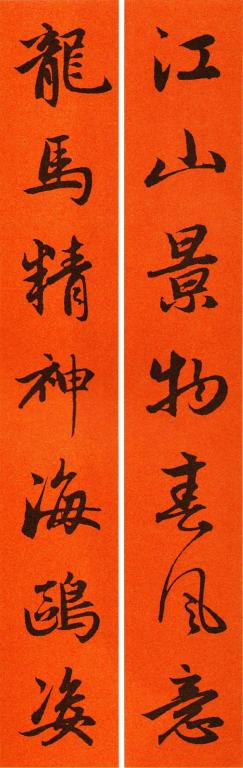 江山景物春风意
龍馬精神海鷗姿